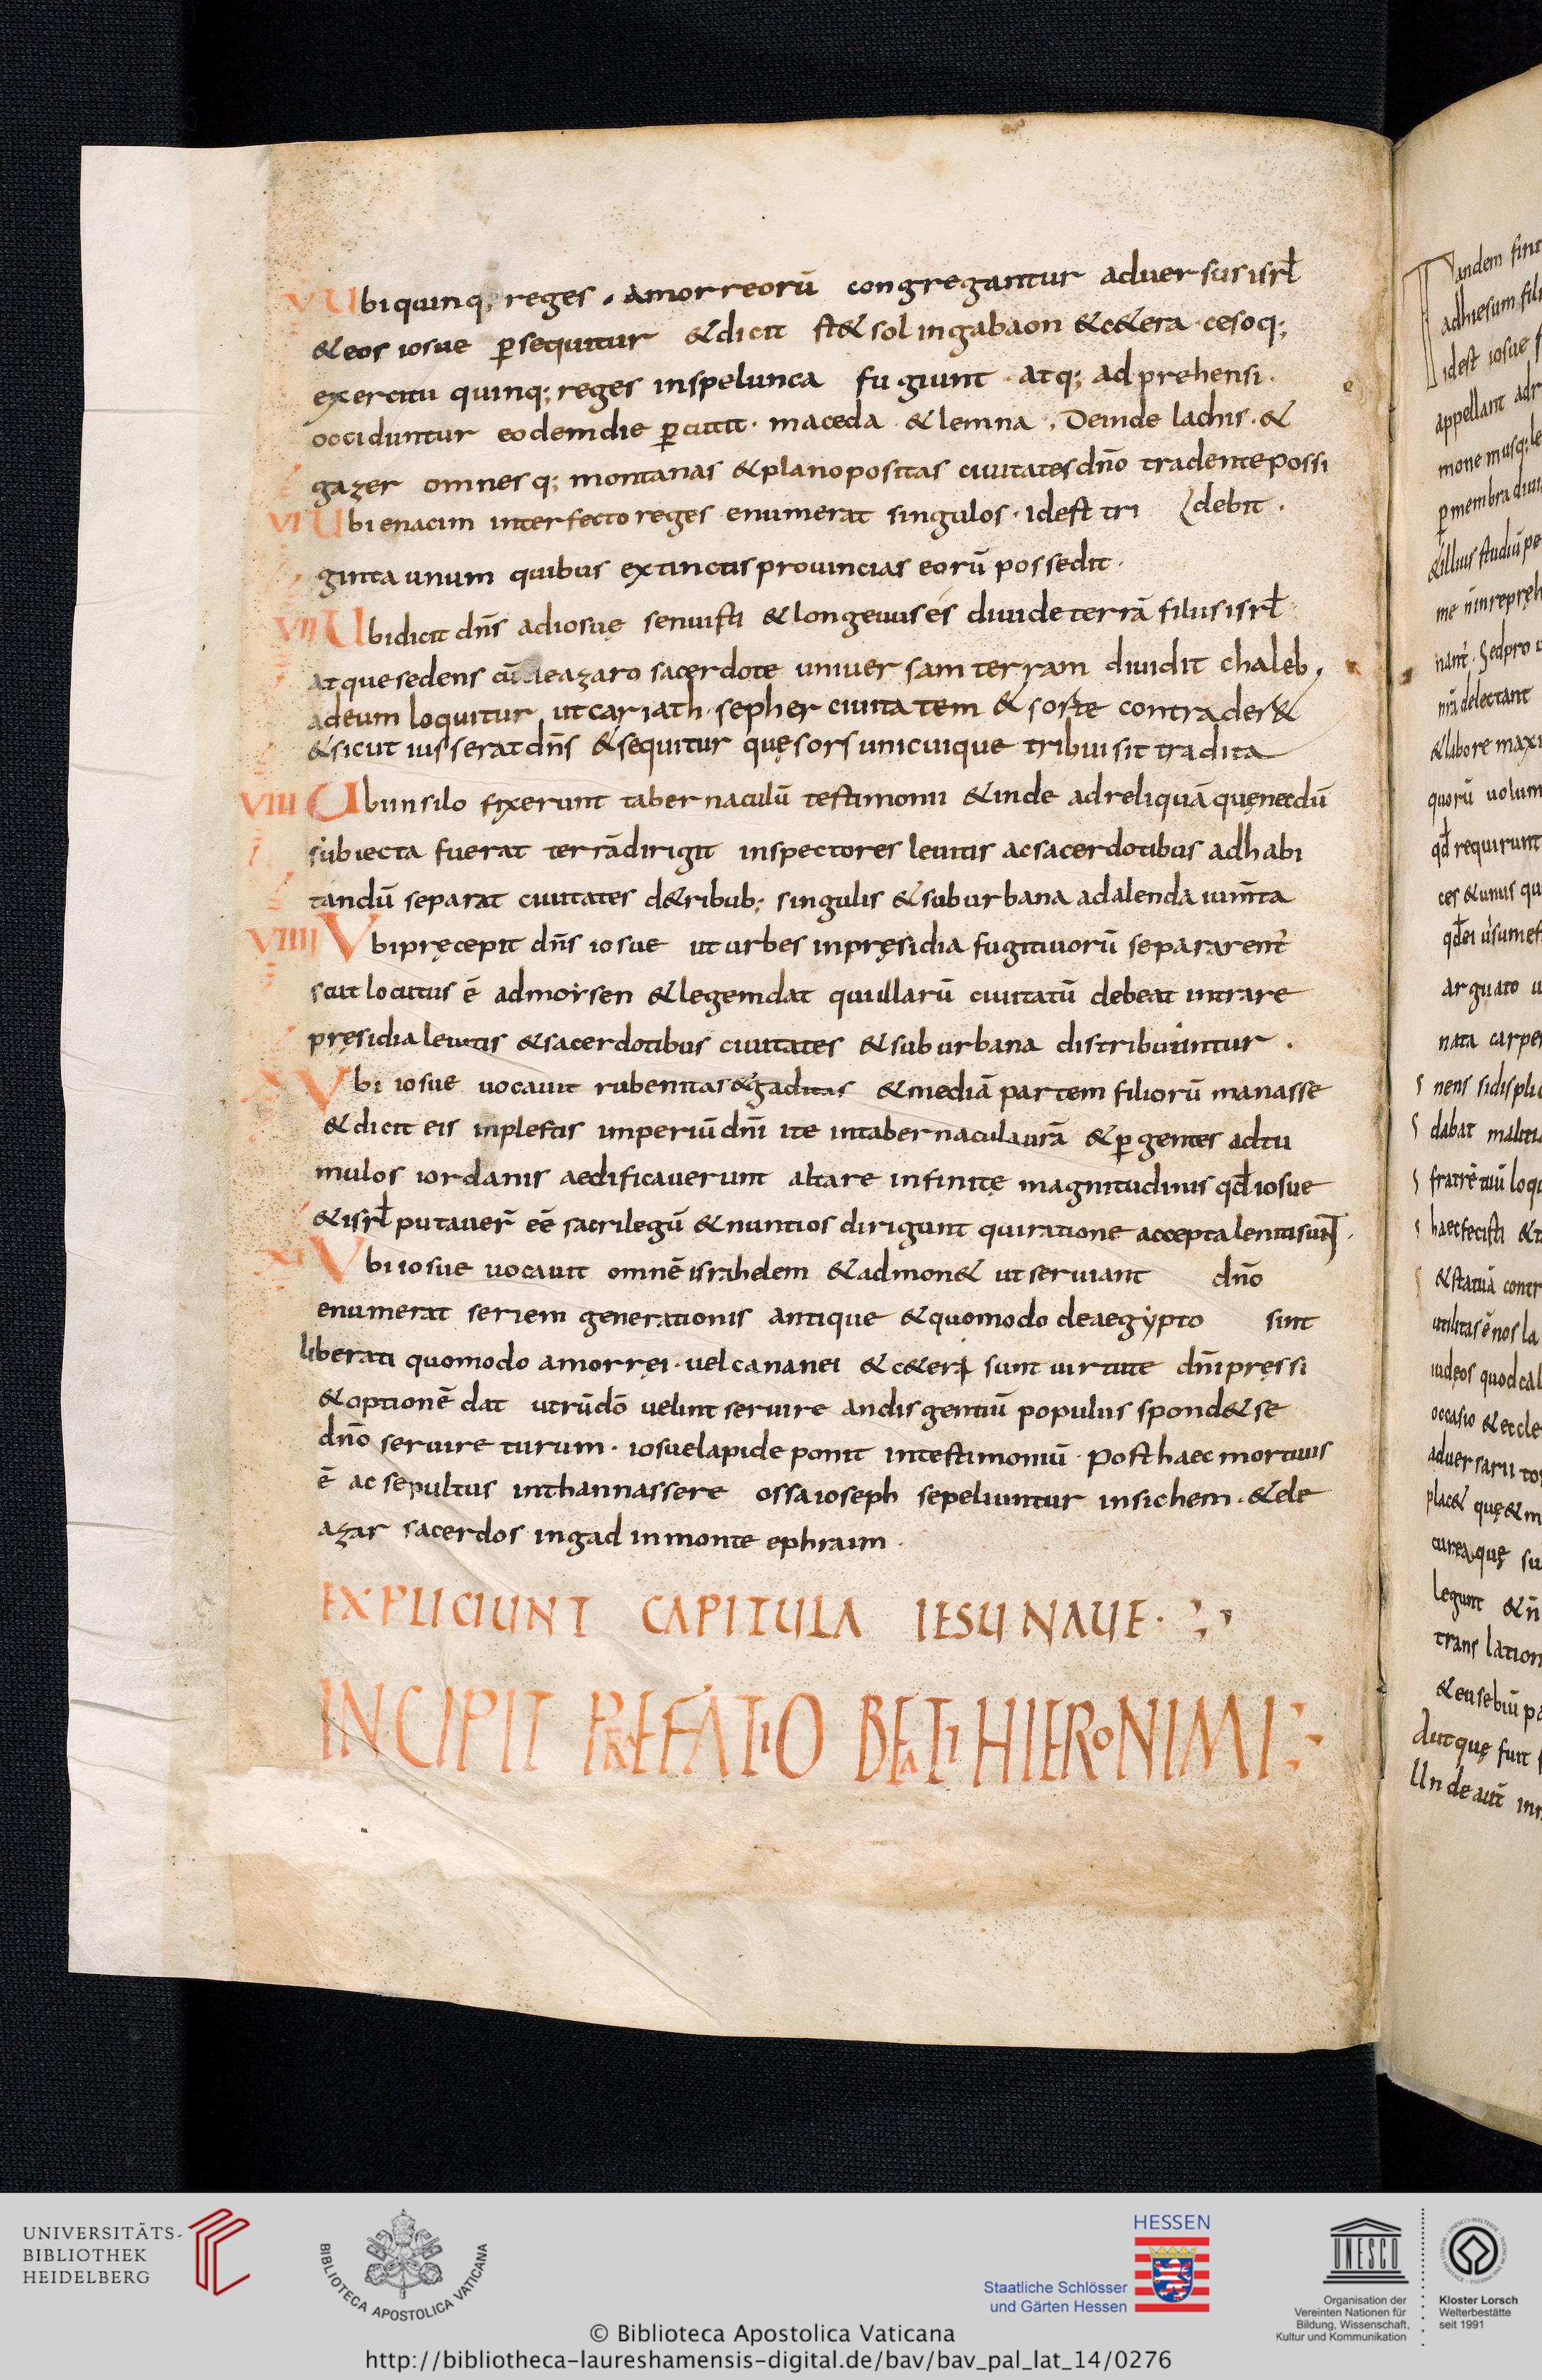 V Ubi quinq; reges . amorreorū congregantur aduersus isrł
& eos iosue ꝑsequitur & dicit st& sol in gabaon & c&era . cesoq;
exercitu quinq; reges in spelunca fugiunt . atq; adprehensi .
occiduntur eodem die ꝑcutit . maceda . & lemna . Deinde lachis . &
gazer omnesq; montanas & plano positas ciuitates dn̄o tradente possi
debit .
VI Ubi enacim interfecto reges enumerat singulos . id est tri
ginta unum quibus extinctis prouincias eorū possedit .
VII Ubi dicit dn̄s ad iosuę senuisti & longeuus es diuide terrā filiis isrł
atque sedens cū eleazaro sacerdote uniuersam terram diuidit chaleb .
ad eum loquitur ut cariath . sepher ciuitatem & sorte contrader&
& sicut iusserat dn̄s & sequitur quę sors unicuique tribui sit tradita
VIII Ubi in silo fixerunt tabernaculū testimonii & inde ad reliquā quę necdū
subiecta fuerat terrā dirigit inspectores leuitis ac sacerdotibus ad habi
tandū separat ciuitates d& tribub; singulis & suburbana ad alenda ium̄ta
VIIII Vbi pręcepit dn̄s iosue ut urbes in pręsidia fugitiuorū separarent̄
scut locutus ē ad moysen & legem dat qui illarū ciuitatū debeat intrare
pręsidia leuitis & sacerdotibus ciuitates & suburbana distribuuntur .
X Vbi iosue uocauit rubenitas & gaditas & mediā partem filiorū manasse
& dicit eis inplestis imperiū dn̄i ite in tabernacula urā & ꝑgentes ad tu
mulos iordanis aedificauerunt altare infinitę magnitudinis qđ iosue
& isrł putauer̄ eē sacrilegū & nuntios dirigunt qui ratione accepta leniti sunt .
XI Vbi iosue uocauit omnē israhelem & admon& ut seruiant dn̄o
enumerat seriem generationis antique & quomodo de aegypto sint
liberati quomodo amorręi . uel cananei & c&eri sunt uirtute dn̄i pręssi
& optionē dat utrū dō uelint seruire an dis gentiū populus spond& se
dn̄o seruiturum . iosue lapide ponit in testimoniū . Post haec mortuus
ē ac sepultus in thannassere ossa ioseph sepeliuntur in sichem . & ele
azar sacerdos in gad in monte ephraim .
EXPLICIUNT CAPITULA IESU NAUE .
INCIPIT PREFATIO BEATI HIERONIMI
andem fini
ad hiesum fili
id est iosue
appellant adr
mone musq; le
ꝑ membra diui
& illius studiū pe
me n̄ in repręh
nant̄ . Sed pro
nr̄i delectant
& labore maxi
quorū uolum
qđ requirunt
ces & unus qu
qđ ei
arguato
nata carper
nens si displic
dabat maliti
fratrē tuū loqu
haec fecisti &
& statuā contr
utilitas ē nos la
iudęos quod cal
occasio & eccle
aduersarii
plac& quę & m
curea quę su
legunt & n̄
translation
& eusebiū pa
aut quę fuit
Unde aut̄ inn
UNIVERSITÄTS-
BIBLIOTHEK
HEIDELBERG
BIBLIOTECA APOSTOLICA VATICANA
HESSEN
Staatliche Schlösser
und Gärten Hessen
UNESCO
Organisation der
Vereinten Nationen für
Bildung, Wissenschaft,
Kultur und Kommunikation
Kloster Lorsch
Welterbestätte
seit 1991
© Biblioteca Apostolica Vaticana
http://bibliotheca-laureshamensis-digital.de/bav/bav_pal_lat_14/0276